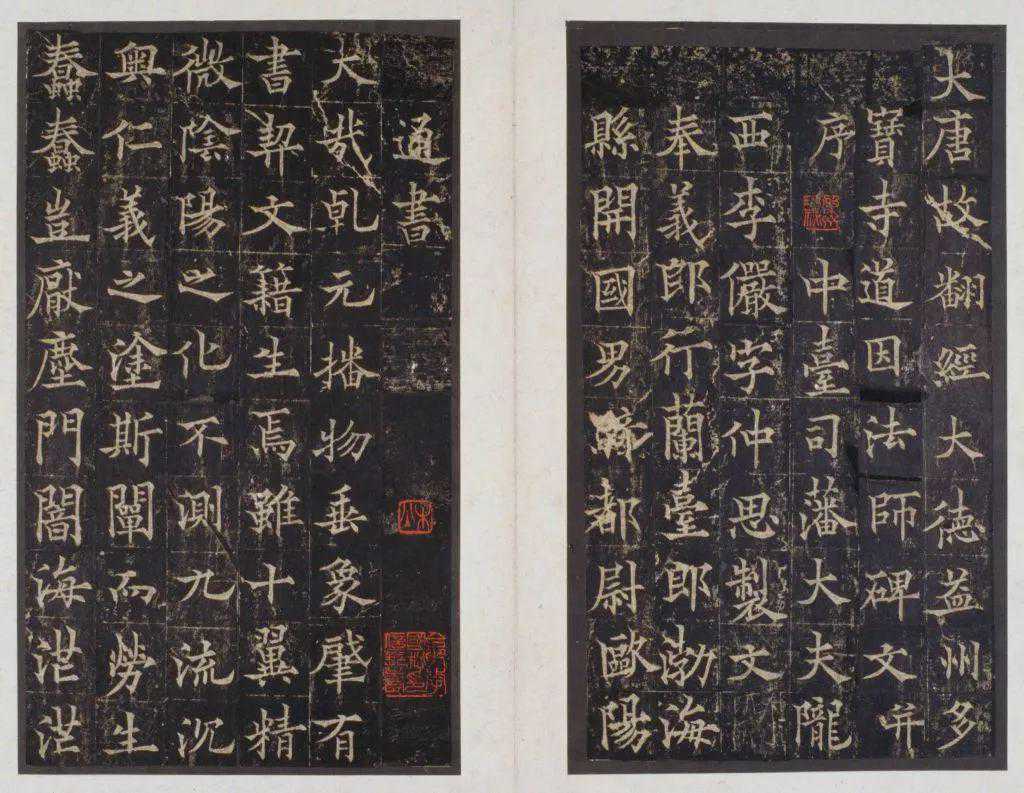 大唐故翻經大德益州多
寶寺道因法師碑文并
序
中臺司藩大夫隴
西李儼字仲思製文
奉義郎行蘭臺郎渤海
縣開國男騎都尉歐陽
通書
大哉乹元播物垂象肇有
書契文籍生焉雖十翼精
微陰陽之化不測九流沉
奧仁義之塗斯闡而勞生
蠢蠢豈厭塵門闇海茫茫